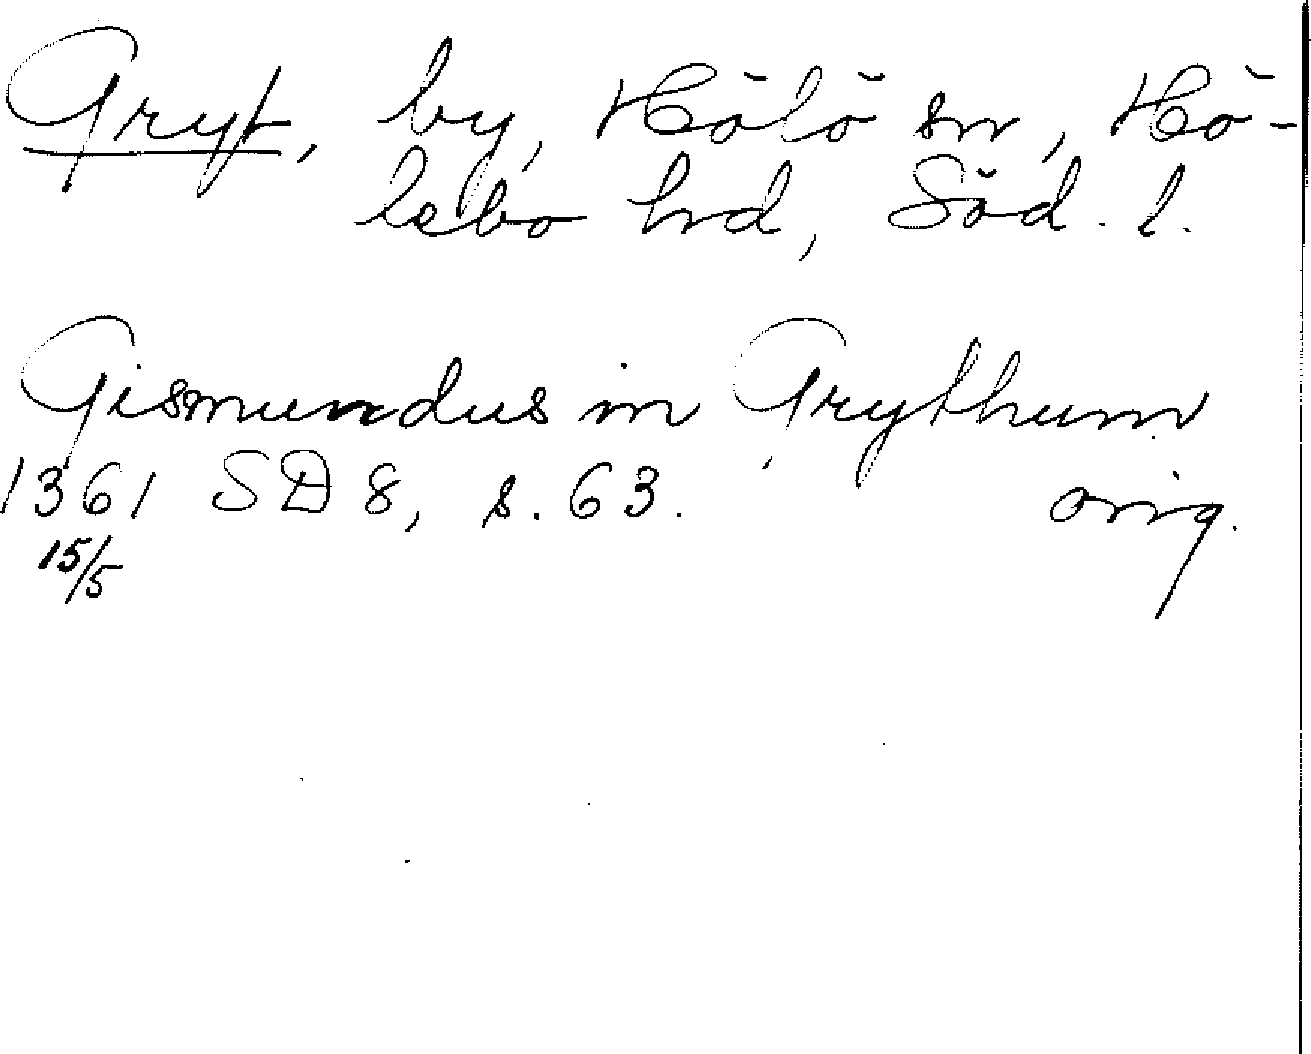 Gryt, by, Hölö sn, Hö-
lebo hd, Söd. l.
Gismundus in Grythum
1361 SD 8, s. 63. orig.
15/5